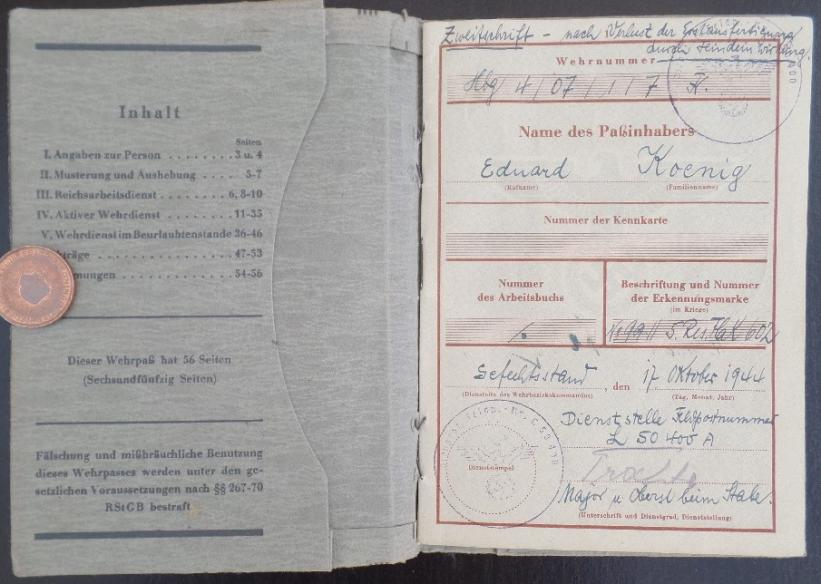 Inhalt
Seiten
I. Angaben zur Person . . . . . . . 3 u. 4
II. Musterung und Aushebung . . . . 5-7
III. Reichsarbeitsdienst . . . . . . . . 6, 8-10
IV. Aktiver Wehrdienst . . . . . . . 11-35
V. Wehrdienst im Beurlaubtenstande 36-46
träge . . . . . . . . . . . . . . 47-53
mungen . . . . . . . . . . . . 54-56
Dieser Wehrpaß hat 56 Seiten
(Sechsundfünfzig Seiten)
Fälschung und mißbräuchliche Benutzung
dieses Wehrpasses werden unter den ge-
setzlichen Voraussetzungen nach §§ 267-70
RStGB bestraft
Zweitschrift - nach Verlust der Erstausfertigung
durch Feindeinwirkung.
Wehrnummer
Hbg 4/07/1/7
Name des Paßinhabers
Eduard Koenig
(Rufname) (Familienname)
Nummer der Kennkarte
Nummer
des Arbeitsbuchs
Beschriftung und Nummer
der Erkennungsmarke
(im Kriege)
Gefechtsstand, den 17. Oktober 1944
(Dienststelle des Wehrbezirkskommandos) (Tag, Monat, Jahr)
Dienststelle Feldpostnummer
L 50 400 A
Dienststempel
Major u beim Stabe.
(Unterschrift und Dienstgrad, Dienststellung)